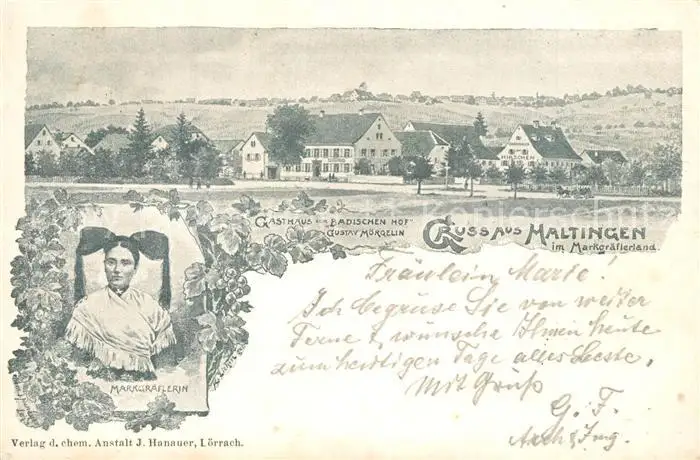 HIRSCHEN
GASTHAUS ZUM BADISCHEN HOF"
GUSTAV MÖRGELIN
GRUSS AUS HALTINGEN
im Markgräflerland.
Fräulein Marie!
Ich begrüse Sie von weiter
Ferne & wünsche Ihnen heute
zum heutigen Tage alles Beste,
Mit Gruß
G. F.
MARKGRÄFLERIN
Verlag d. chem. Anstalt J. Hanauer, Lörrach.